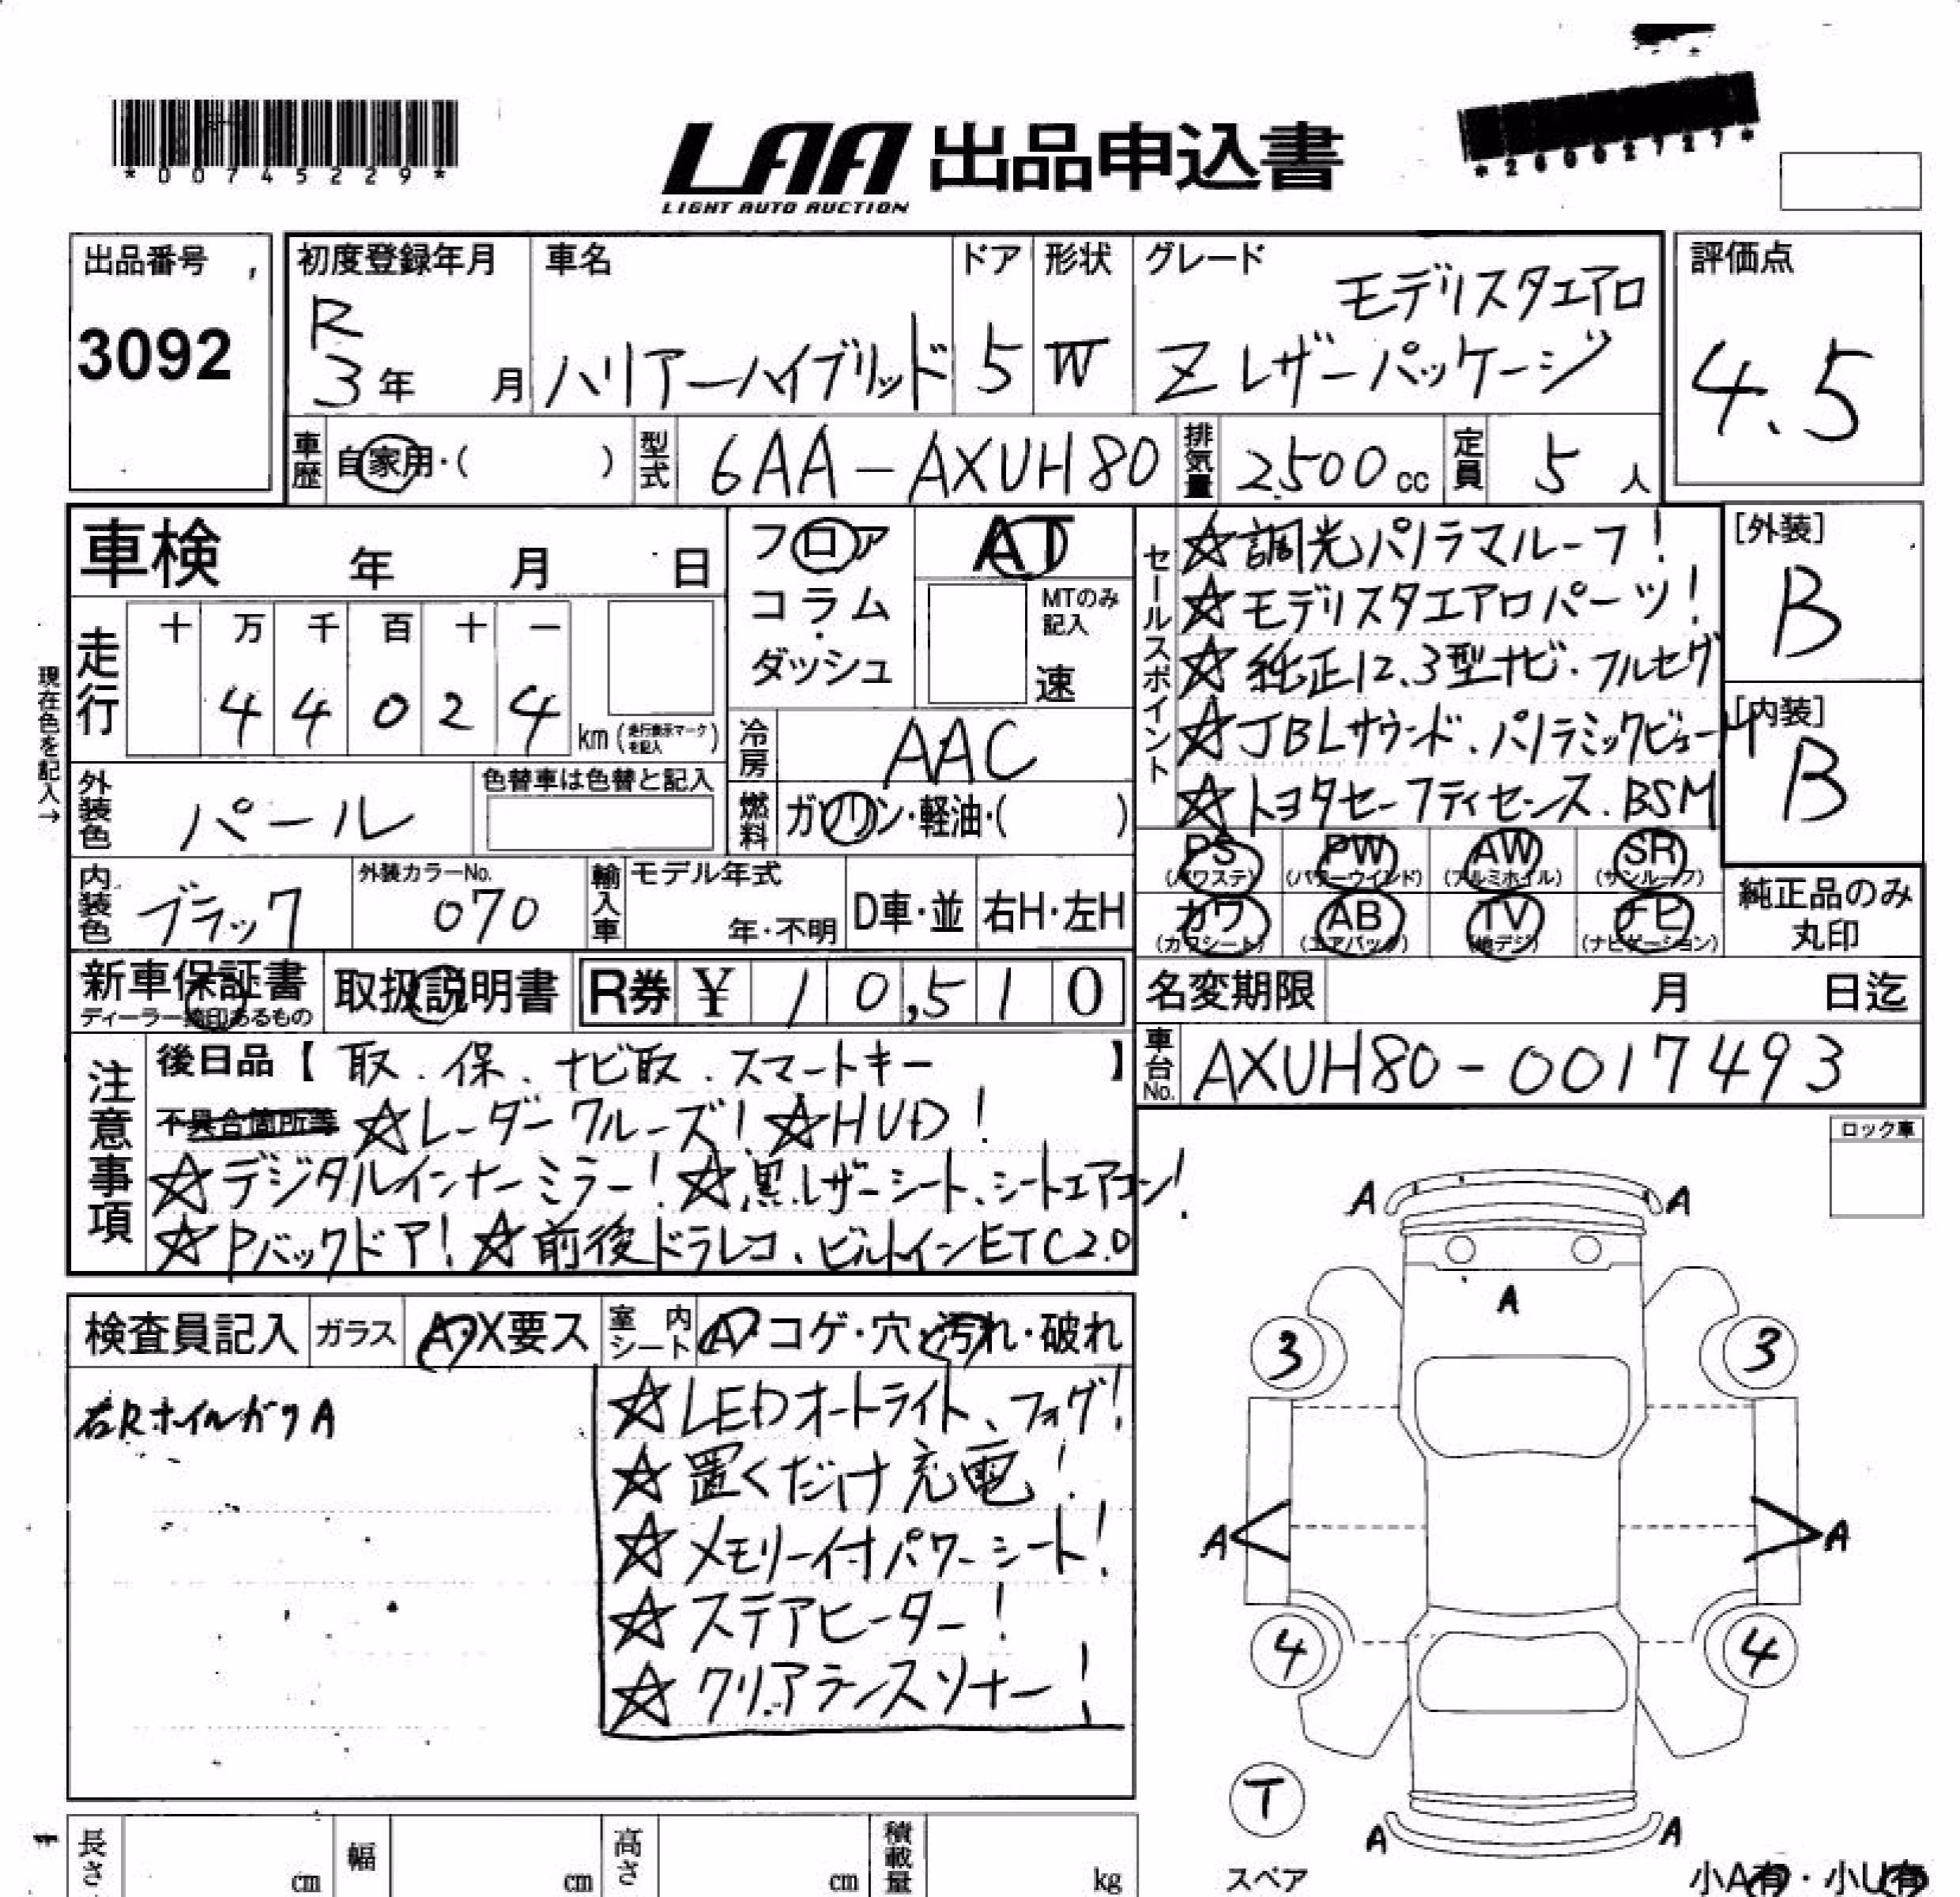 *00745229*
LAA 出品申込書
LIGHT AUTO AUCTION
*26002727*
出品番号
3092
初度登録年月
R
3年 月
車名
ハリアーハイブリッド
ドア
5
形状
W
グレード
モデリスタエアロ
Z レザーパッケージ
評価点
4.5
車歴
自家用・( )
型式
6AA-AXUH80
排気量
2500cc
定員
5人
車検 年 月 日
フロア
コラム
・
ダッシュ
AT
MTのみ
記入
速
現在色を記入→
走行
十 万 千 百 十 一
4 4 0 2 4
km(走行表示マークを記入)
冷房
AAC
外装色
パール
色替車は色替と記入
燃料
ガソリン・軽油・( )
セールスポイント
☆調光パノラマルーフ!
☆モデリスタエアロパーツ!
☆純正12.3型ナビ・フルセグ
☆JBLサウンド、パノラミックビュー
☆トヨタセーフティセンス、BSM
[外装]
B
[内装]
B
内装色
ブラック
外装カラーNo.
070
輸入車
モデル年式
年・不明
D車・並
右H・左H
PS
(パワステ)
PW
(パワーウインド)
AW
(アルミホイル)
SR
(サンルーフ)
カワ
(カワシート)
AB
(エアバック)
TV
(地デジ)
ナビ
(ナビゲーション)
純正品のみ
丸印
新車保証書
ディーラー捺印あるもの
取扱説明書
R券 ¥ 10,510
名変期限 月 日迄
車台No.
AXUH80-0017493
注意事項
後日品【 取、保、ナビ取、スマートキー 】
不具合箇所等 ☆レーダークルーズ! ☆HUD!
☆デジタルインナーミラー! ☆黒レザーシート、シートエアコン!
☆Pバックドア! ☆前後ドラレコ、ビルトインETC2.0
ロック車
検査員記入
ガラス
A・X要ス
室内
シート
A・コゲ・穴・汚れ・破れ
右Rホイルガリ A
☆LEDオートライト、フォグ!
☆置くだけ充電!
☆メモリー付パワーシート!
☆ステアヒーター!
☆クリアランスソナー!
A A
A
3 3
A A
4 4
T
スペア
A A
小A有・小U有
長さ cm
幅 cm
高さ cm
積載量 kg